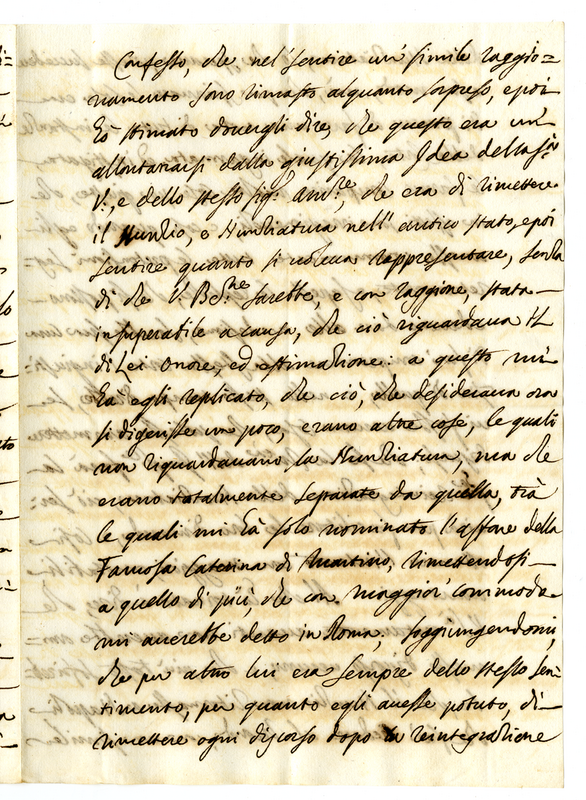 Confesso, che nel' sentire un' simile raggio=
namento sono rimasto alquanto sorpreso, e poi
hò stimato douergli dire, che questo era un'
allontanarsi dalla giustissima Idea della S.tà
V., e dello stesso Sig.r Amb.re, che era di rimettere
il Nunzio, e Nunziatura nell' antico stato, e poi
sentire quanto si uoleua rappresentare, senza
di che V. Be.ne sarebbe, e con raggione, stata
insuperabile a causa, che ciò riguardaua il
di Lei onore, ed estimazione: a questo mi
hà egli replicato, che ciò, che desideraua ora
si digerisse un poco, erano altre cose, le quali
non riguardauano la Nunziatura, ma che
erano totalmente separate da quella, trà
le quali mi hà solo nominato l'affare della
Famosa Caterina di Martino, rimettendosi
a quello di più, che con maggior' commodo
mi auerebbe detto in Roma; soggiungendomi,
che per altro lui era sempre dello stesso sen=
timento, per quanto egli auesse potuto, di
rimettere ogni discorso dopo la reintegrazione